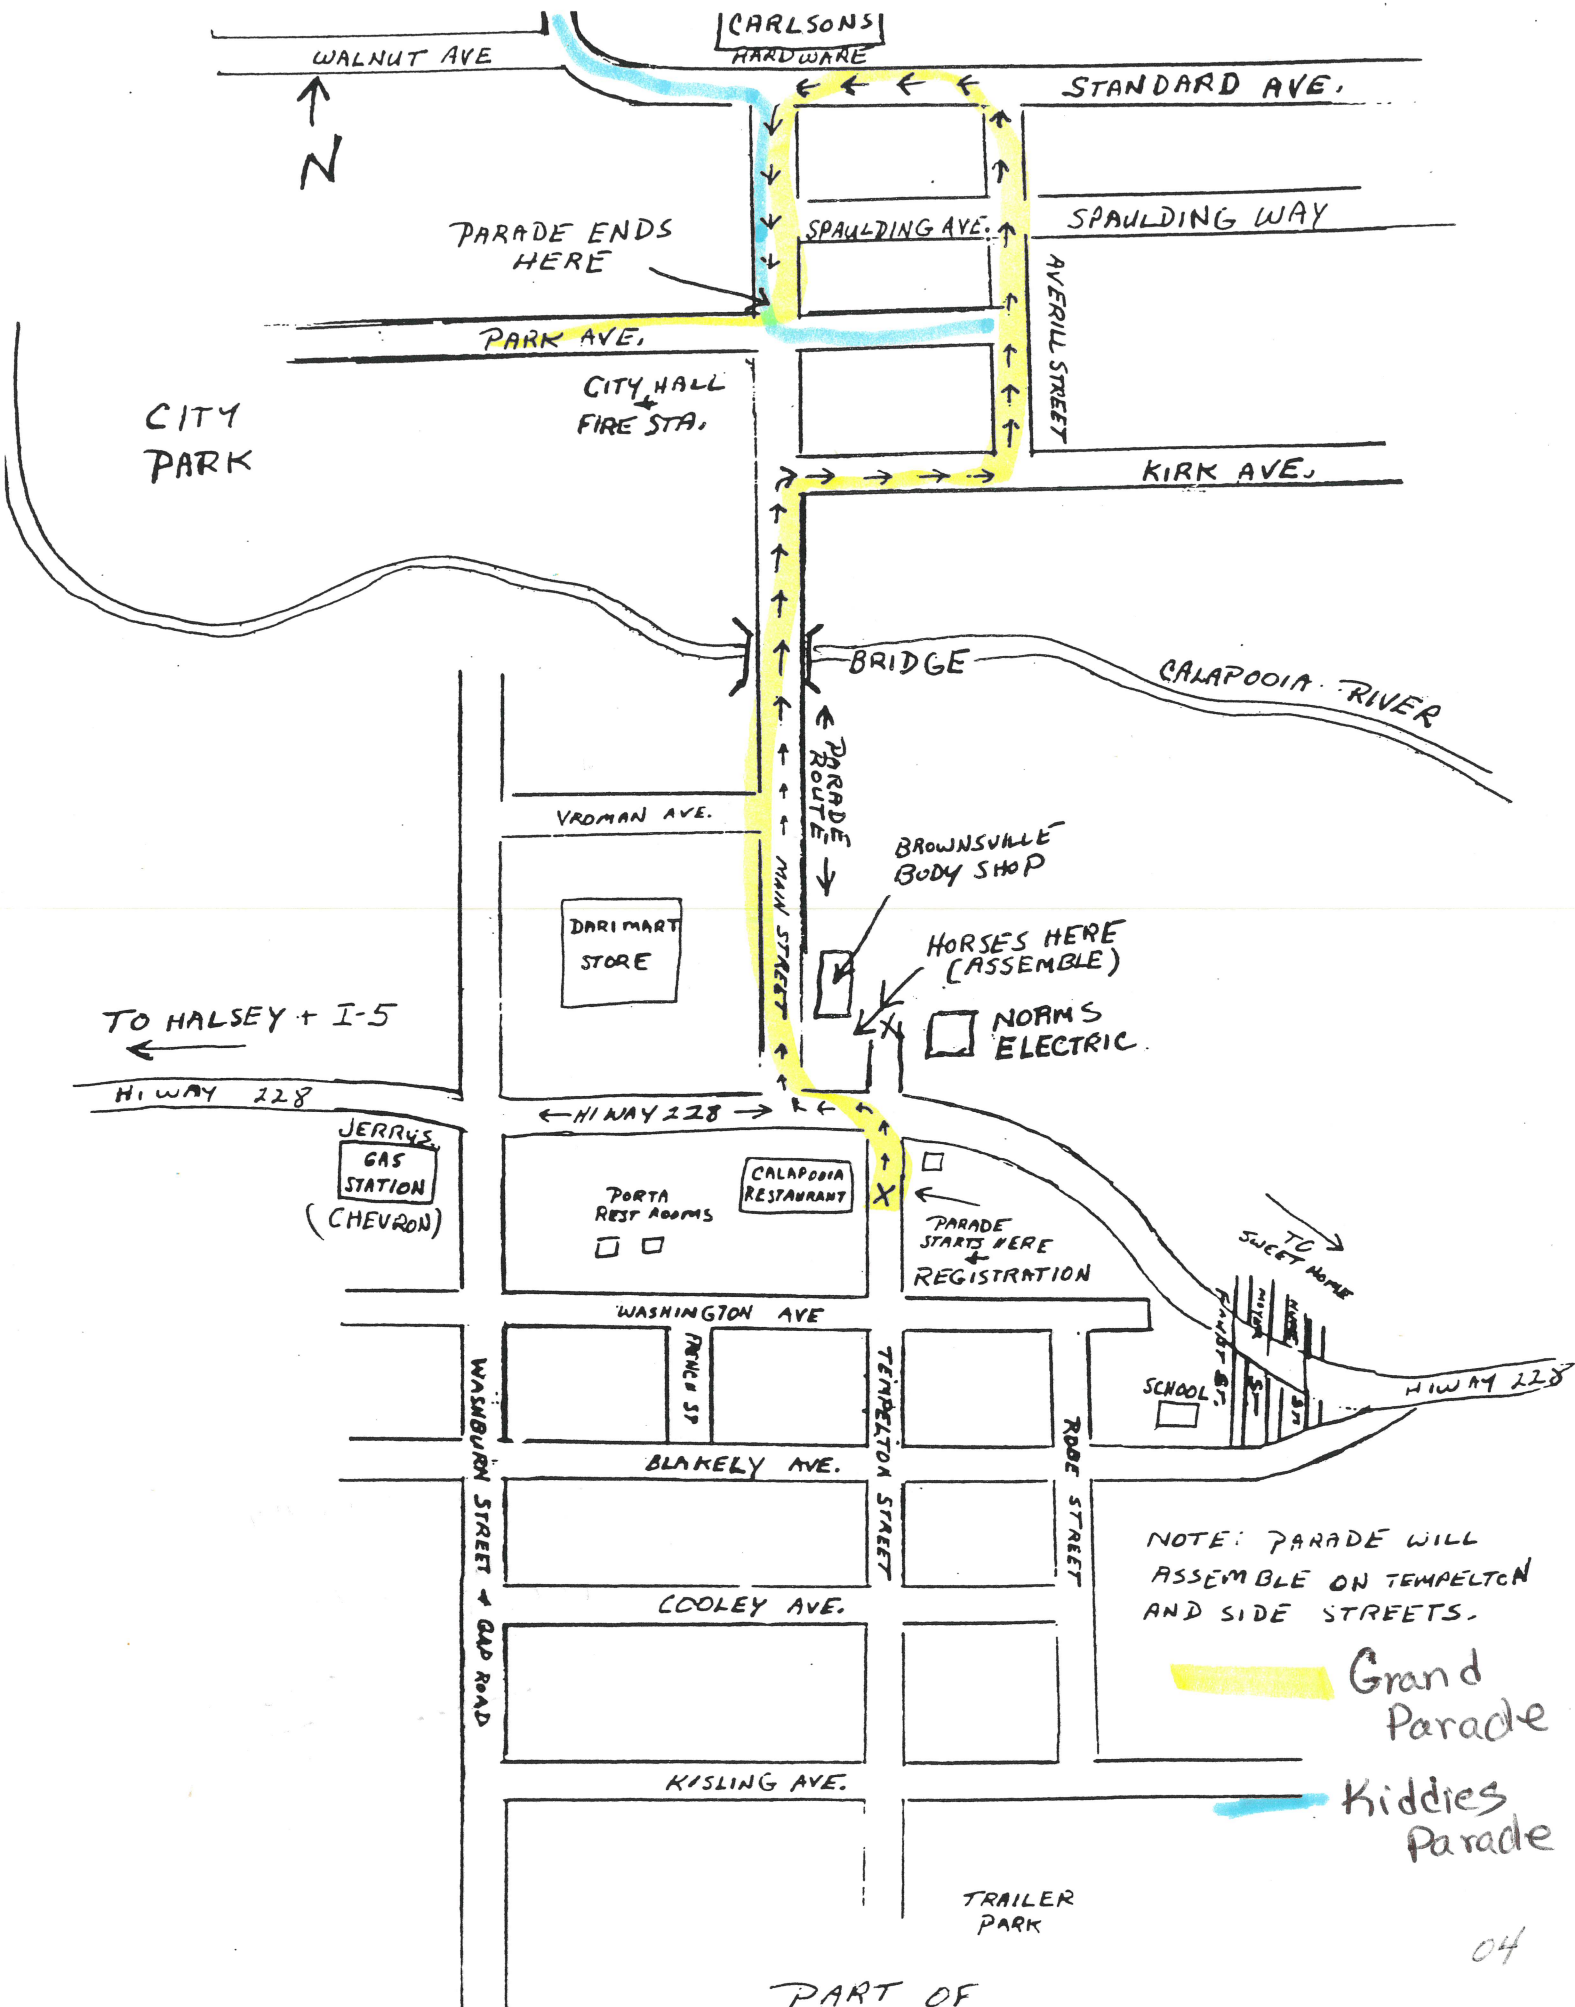 CARLSONS
HARDWARE
WALNUT AVE
STANDARD AVE.
N
PARADE ENDS
HERE
SPAULDING AVE.
SPAULDING WAY
AVERILL STREET
PARK AVE.
CITY HALL
+
FIRE STA.
CITY
PARK
KIRK AVE.
BRIDGE
CALAPOOIA RIVER
PARADE
ROUTE
VROMAN AVE.
MAIN STREET
BROWNSVILLE
BODY SHOP
DARIMART
STORE
HORSES HERE
(ASSEMBLE)
X
NORMS
ELECTRIC
TO HALSEY + I-5
HIWAY 228
HIWAY 228
JERRYS
GAS
STATION
(CHEVRON)
CALAPOOIA
RESTAURANT
X
PORTA
REST ROOMS
PARADE
STARTS HERE
+
REGISTRATION
TO
SWEET HOME
WASHINGTON AVE
FRENCH ST
TEMPELTON STREET
WASHBURN STREET + GAP ROAD
ROBE STREET
SCHOOL
ST.
ST
ST
HIWAY 228
BLAKELY AVE.
COOLEY AVE.
KISLING AVE.
NOTE: PARADE WILL
ASSEMBLE ON TEMPELTON
AND SIDE STREETS.
Grand
Parade
Kiddies
Parade
TRAILER
PARK
04
PART OF